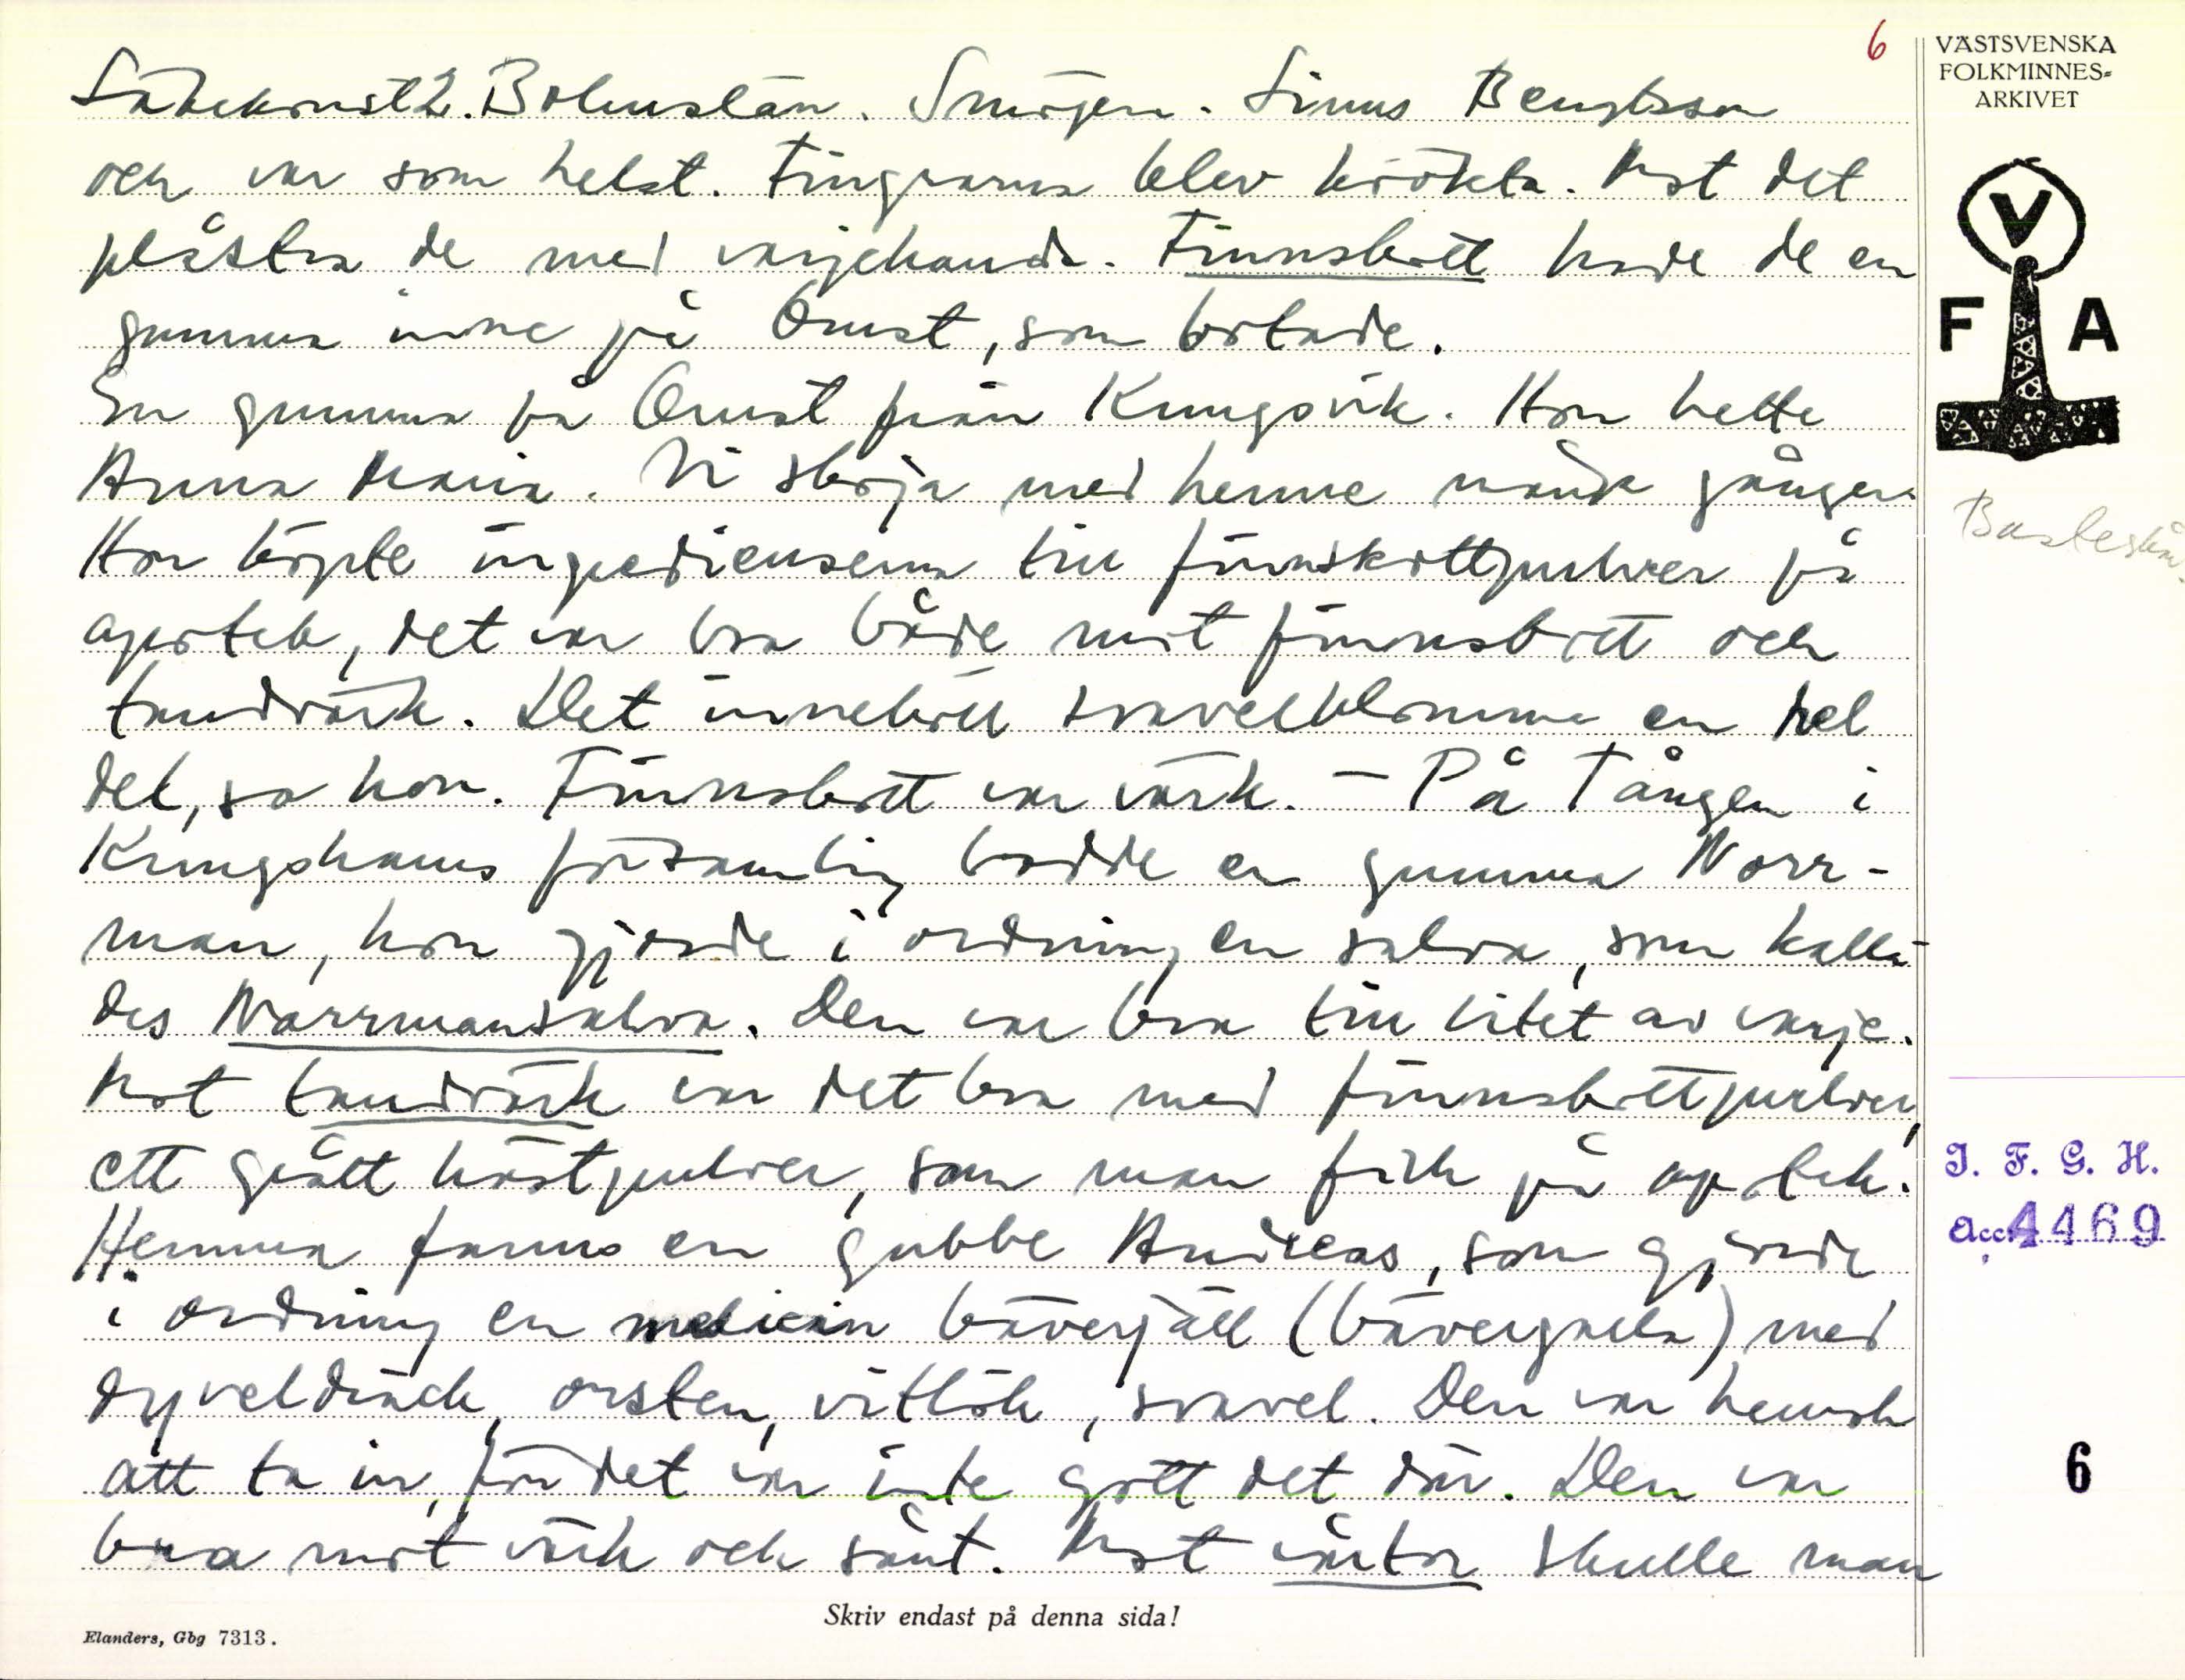 6
Läkekonst 2. Bohuslän. Smögen. Linus Bengtsson
och var som helst. Fingrarna blev krökta. Mot det
plåstra de med varjehanda. Finnskott hade de en
gumma inne på Orust, som botade.
En gumma på Orust från Kungsvik. Hon hette
Anna Maria. Vi skoja med henne många gånger.
Hon köpte ingredienserna till finnskottpulver på
apotek, det var bra både mot finnskott och
tandvärk. Det innehöll svavelblomma en hel
del, sa hon. Finnskott var värk. – På Tången i
Kungshamns församling bodde en gumma Norr-
man, hon gjorde i ordning en salva, som kalla-
des Norrmansalva. Den var bra till litet av varje.
Mot tandvärk var det bra med finnskottpulver,
ett grått höstpulver, som man fick på apotek.
Hemma fanns en gubbe Andreas, som gjorde
i ordning en medicin bäverjäll (bävergälla) med
dyveldräck, orsten, vitlök, svavel. Den var hemsk
att ta in, för det var inte gott det där. Den var
bra mot värk och sånt. Mot vårtor skulle man
Skriv endast på denna sida!
Elanders, Gbg 7313.
VÄSTSVENSKA
FOLKMINNES=
ARKIVET
V
F A
I. F. G. H.
acc. 4469
6